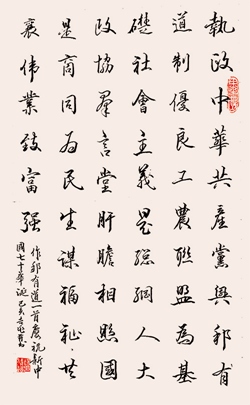 執政中華共產黨興邦有
道制優良工農聯盟為基
礎社會主義是總綱人大
政協羣言堂肝膽相照國
是商同為民生謀福祉共
襄偉業致富強
作邦有道一首慶祝新中
國七十華誕己亥